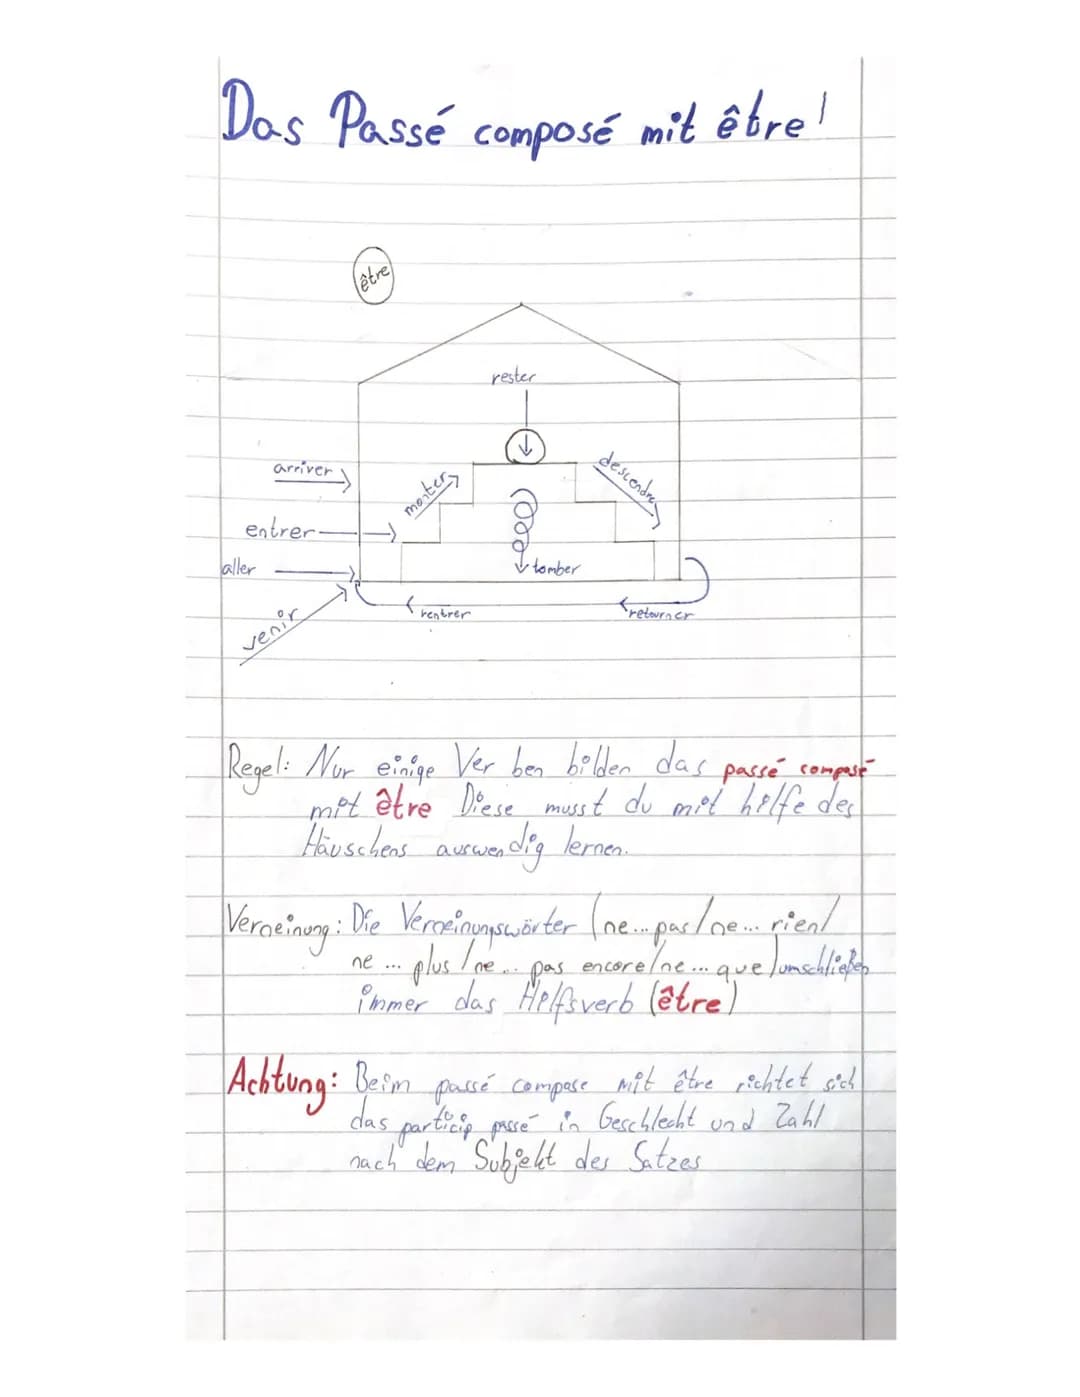 Das Passé composé mit être!
être
rester
arriver
monter
descendre
entrer
aller
tomber
venir
rentrer
retourner
Regel: Nur einige Ver ben bilden das passé composé
mit être Diese musst du mit hilfe des
Häuschens auswendig lernen.
Verneinung: Die Verneinungswörter (ne... pas/ne... rien/
ne ... plus/ne... pas encore/ne... que) umschließen
immer das Hilfsverb (être)
Achtung: Beim passé compose mit être richtet sich
das particip passé in Geschlecht und Zahl
nach dem Subjekt des Satzes